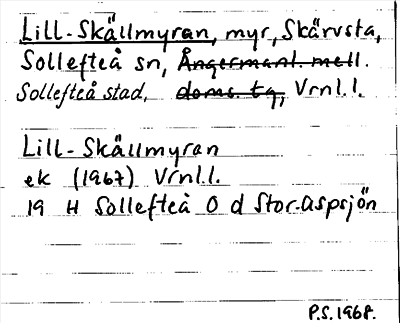 Lill-Skällmyran, myr, Skärvsta,
Sollefteå sn, Ångermanl. mell.
Sollefteå stad, doms. tg, Vrnl.l.
Lill-Skällmyran
ek (1967) Vrnl.l.
19 H Sollefteå O d Stor-Aspsjön
P.S. 1968.